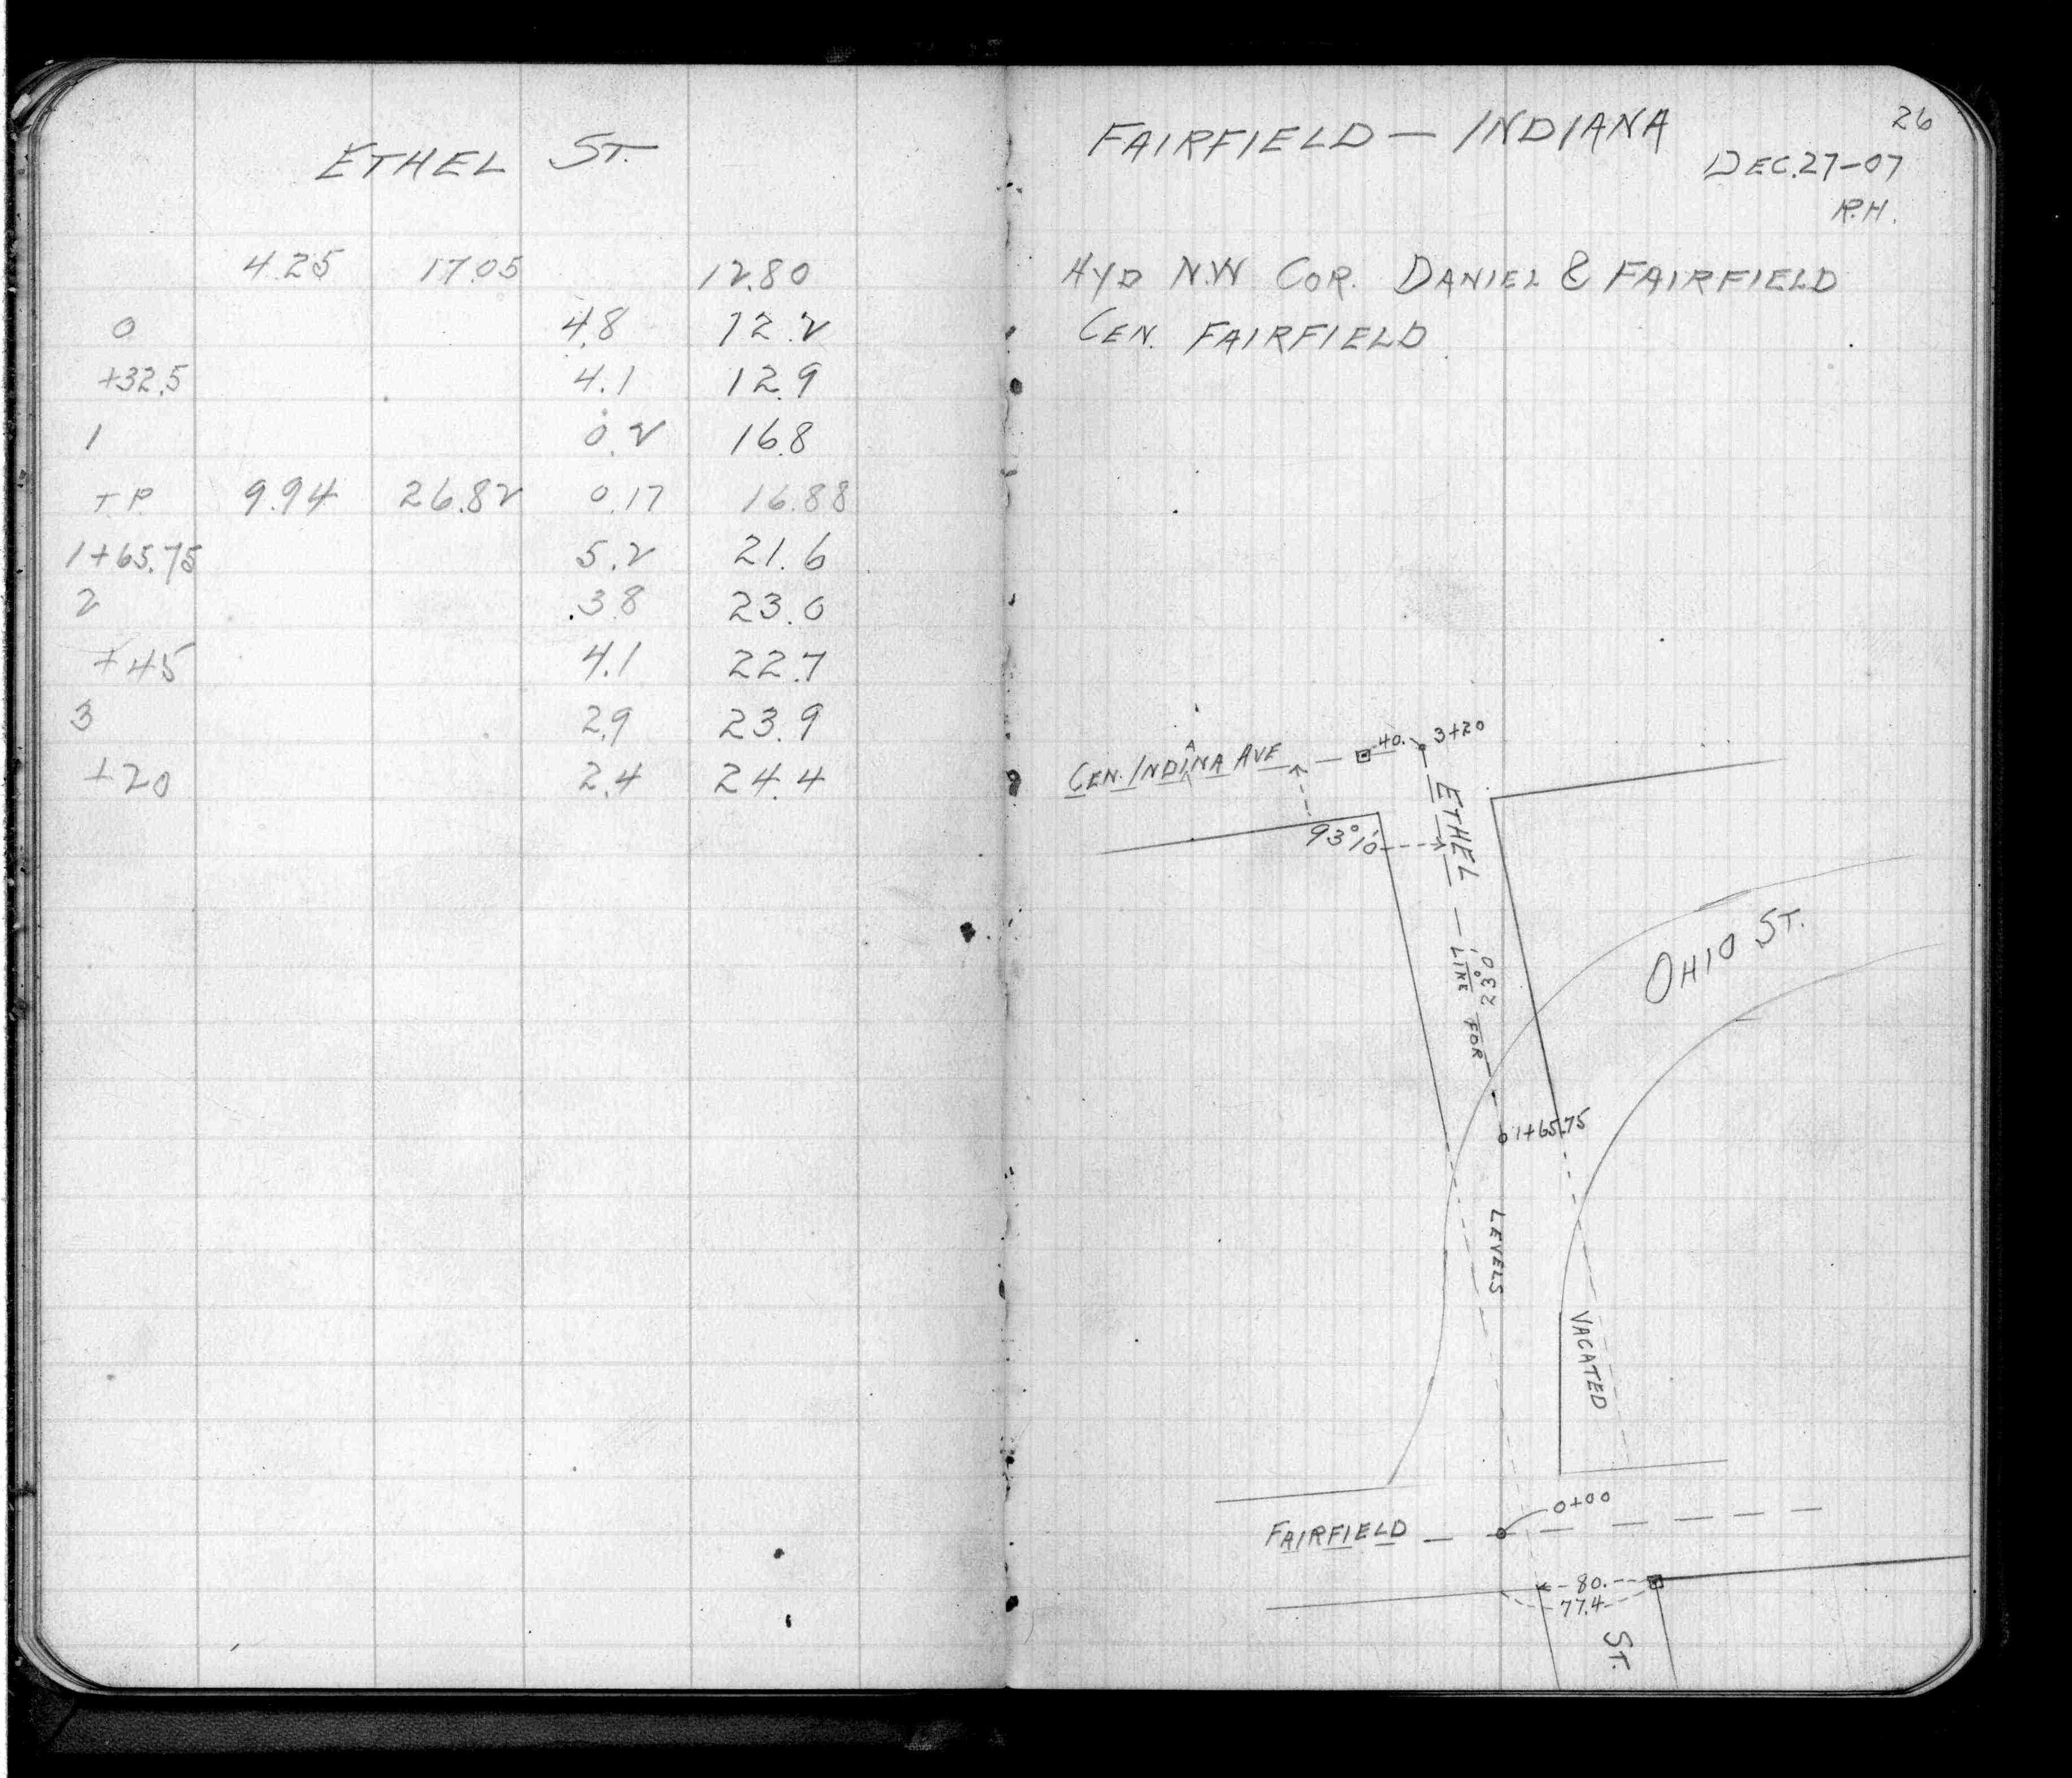 ETHEL ST.
4.25 17.05 12.80
0 4.8 12.2
+32.5 4.1 12.9
1 0.2 16.8
T.P. 9.94 26.82 0.17 16.88
1+65.75 5.2 21.6
2 3.8 23.0
+45 4.1 22.7
3 2.9 23.9
+20 2.4 24.4
FAIRFIELD — INDIANA
26
DEC. 27-07
R.H.
HYD N.W COR. DANIEL & FAIRFIELD
CEN. FAIRFIELD
CEN. INDINA AVE
40.
3+20
ETHEL
93°10'
OHIO ST.
LINE FOR
1+65.75
LEVELS
VACATED
0+00
FAIRFIELD
80.
77.4
ST.